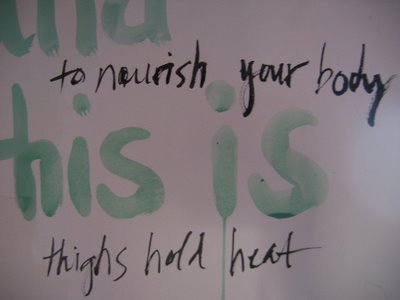 to nourish your body
this is
thighs hold heat